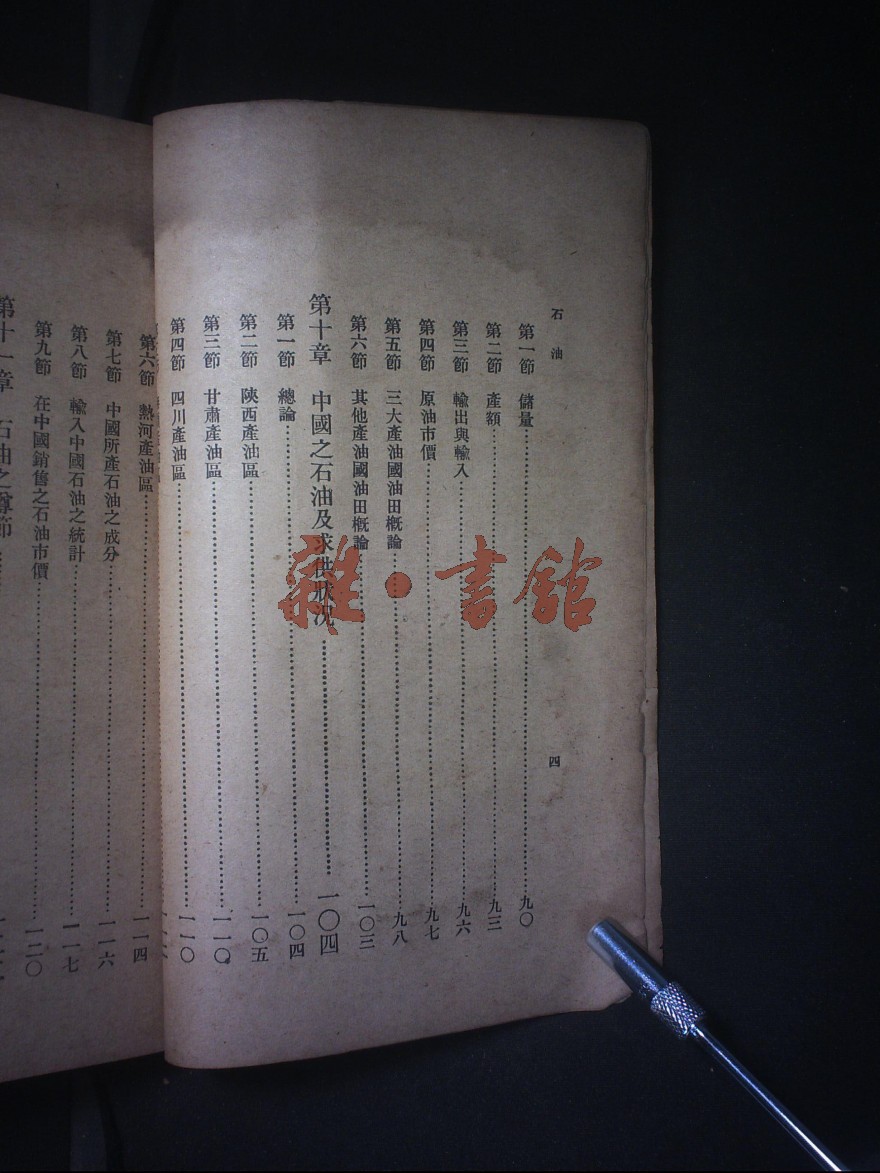 石油
四
第一節 儲量……九〇
第二節 產額……九三
第三節 輸出與輸入……九六
第四節 原油市價……九七
第五節 三大產油國油田概論……九八
第六節 其他產油國油田概論……一〇三
第十章 中國之石油及求供狀况……一〇四
第一節 總論……一〇四
第二節 陝西產油區……一〇五
第三節 甘肅產油區……一一〇
第四節 四川產油區……一一〇
第六節 熱河產油區……一一四
第七節 中國所產石油之成分……一一六
第八節 輸入中國石油之統計……一一七
第九節 在中國銷售之石油市價……一二〇
第十一章 石油之撙節
雜·書館